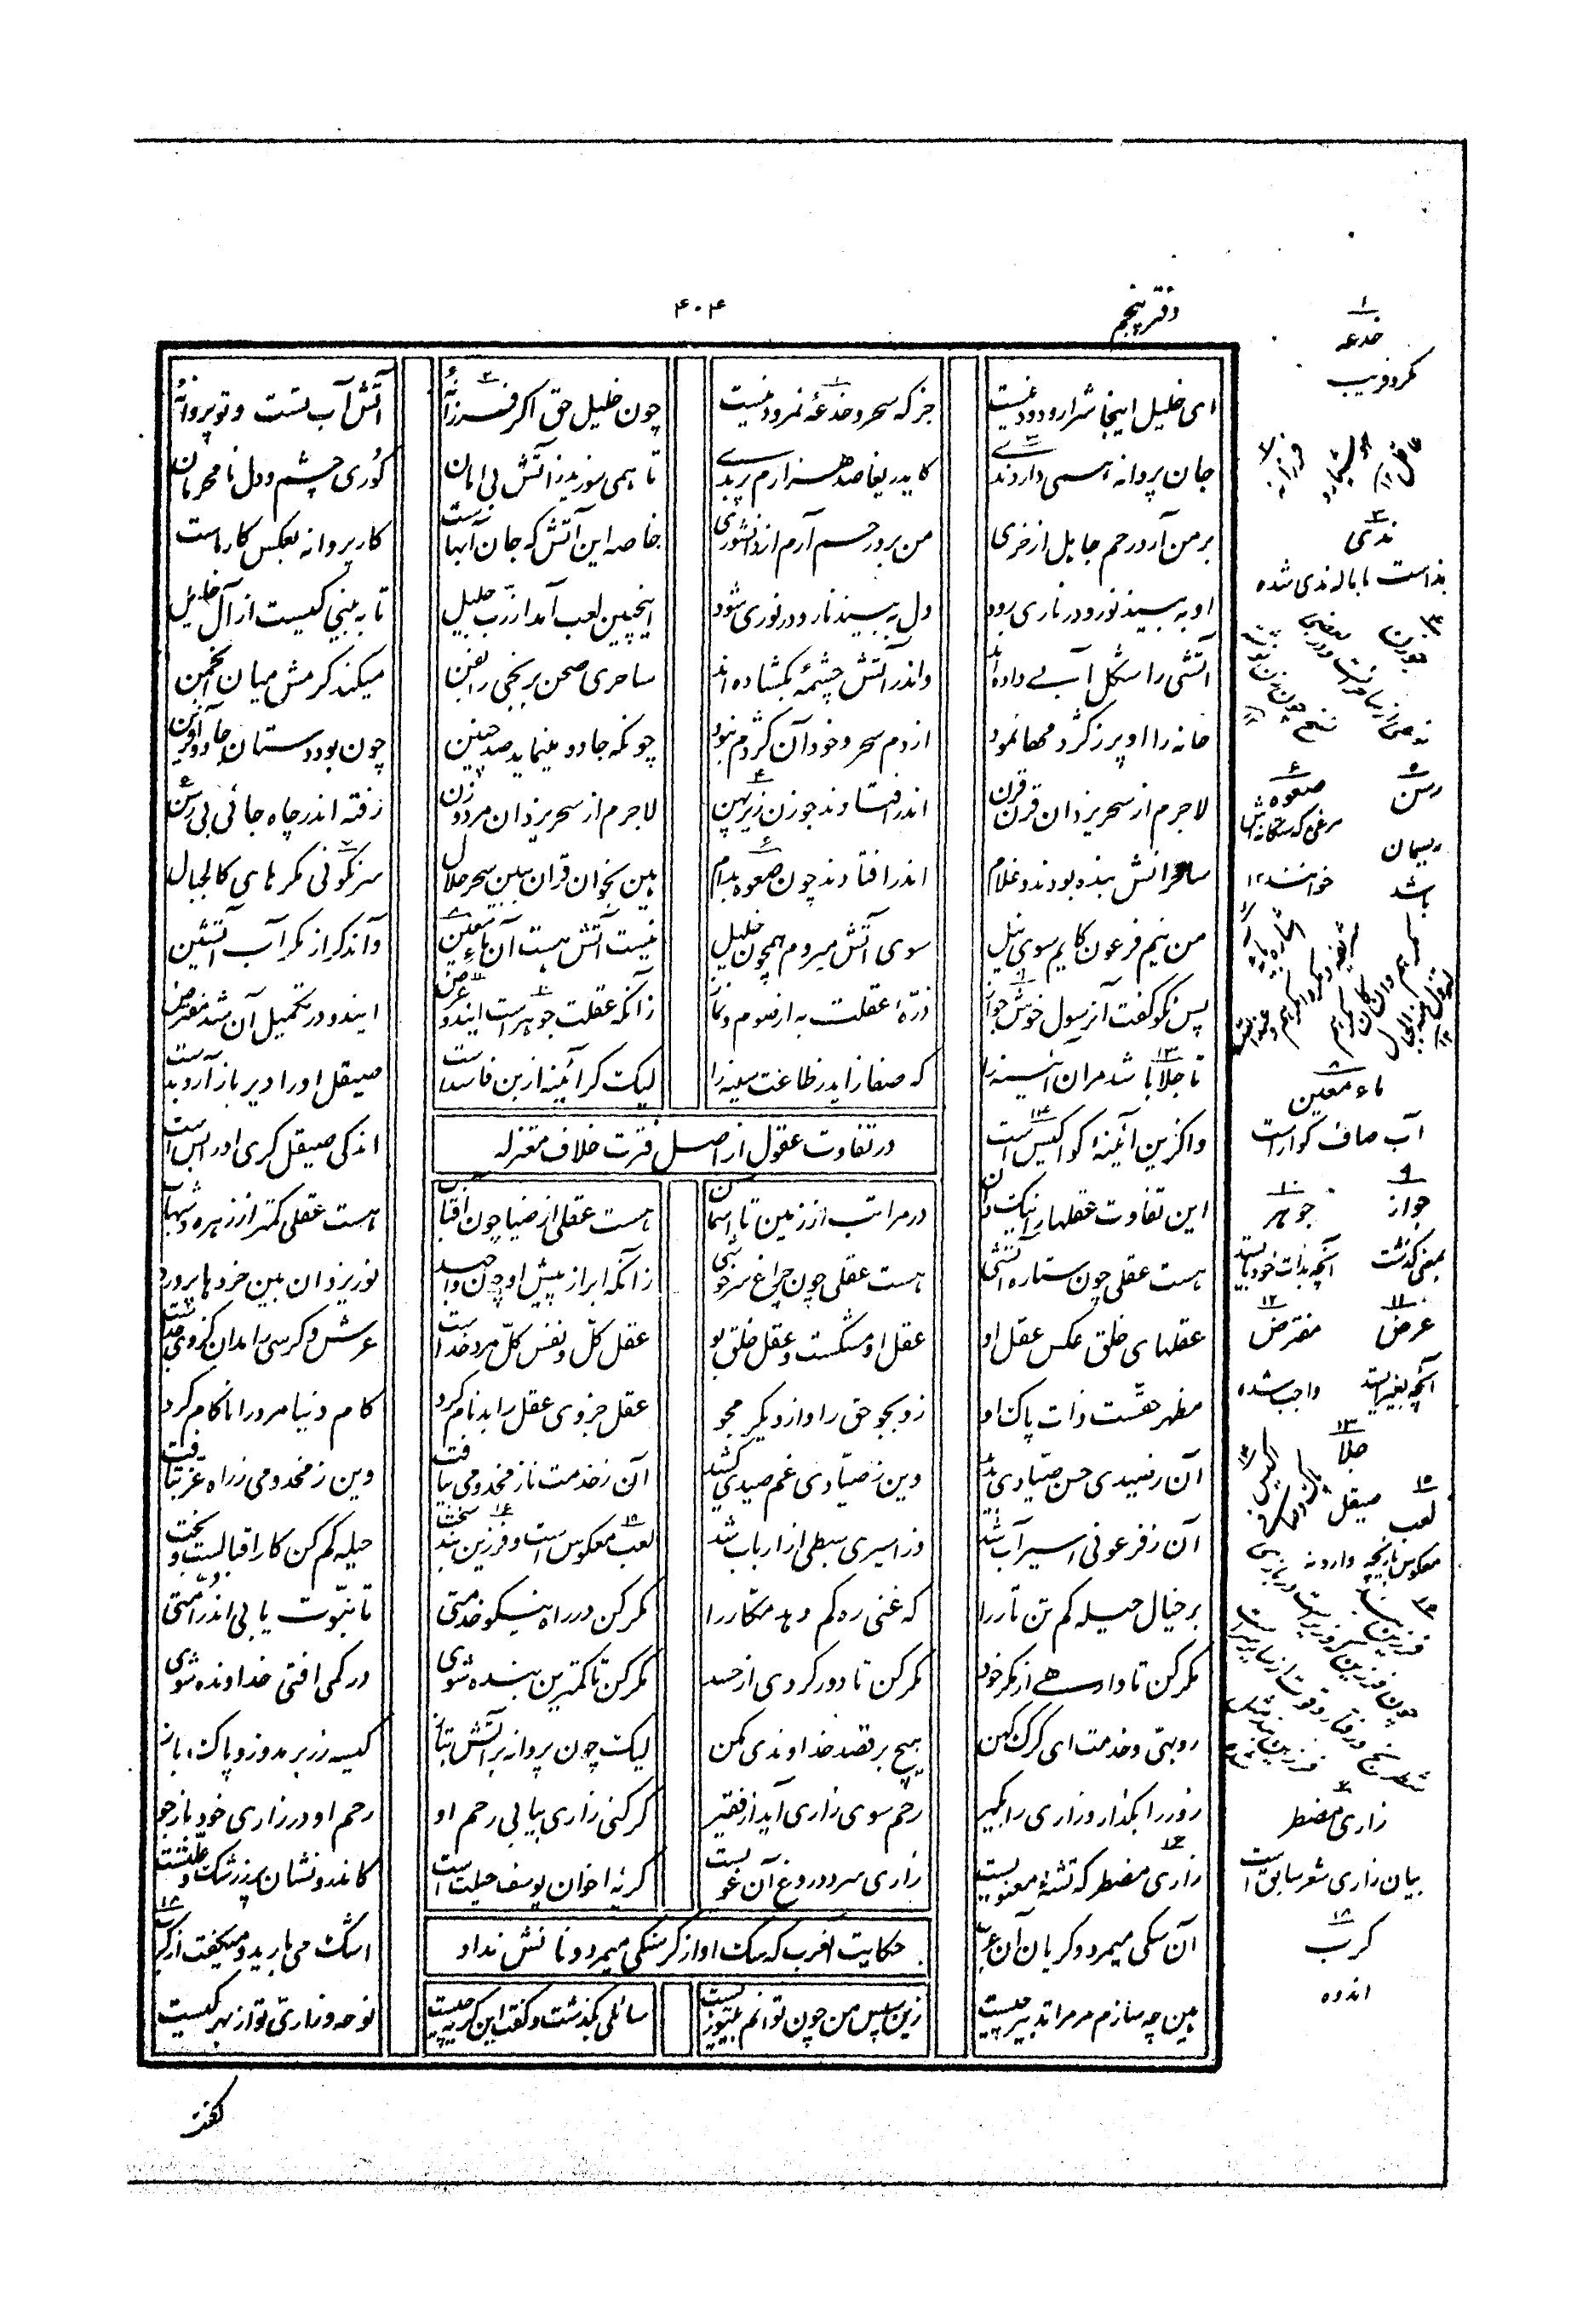 دفتر پنجم
۴۰۴
ای خلیل اینجا شرار و دود نیست جز که سحر و خدعهٔ نمرود نیست چون خلیل حق اگر فرزانهٔ آتش آب تست و تو پروانهٔ
جان پروانه همی دارد ندی کای دریغا صد هزارم پر بدی تا همی سوزید ز آتش بی امان کوری چشم و دل نامحرمان
بر من آرد رحم جاهل از خری من برو رحم آرم از دانشوری خاصه این آتش که جان آبهاست کار پروانه بعکس کار ماست
او به بیند نور و در ناری رود دل به بیند نار و در نوری شود اینچنین لعب آمد از رب جلیل تا به بینی کیست از آل خلیل
آتشی را شکل آبی داده اند واندر آتش چشمهٔ بگشاده اند ساحری صحن برنجی را بفن میکند کرمش میان انجمن
خانه را او پر ز کژدمها نمود از دم سحر و خود آن کژدم نبود چونکه جادو مینماید صد چنین چون بود دستان جادو آفرین
لاجرم از سحر یزدان قرن قرن اندر افتادند چو زن زیر پهن لاجرم از سحر یزدان مرد و زن رفته اندر چاه جائی بی رسن
ساحرانش بنده بودند و غلام اندر افتادند چون صعوه بدام هین بخوان قران ببین سحر حلال سرنگونی مکرهای کالجبال
من نیم فرعون کایم سوی نیل سوی آتش میروم همچون خلیل نیست آتش هست آن ماء معین وآندگر از مکر آب آتشین
پس نکو گفت آن رسول خوش جواز ذرهٔ عقلت به از صوم و نماز زانکه عقلت جوهرست ایندو عرض ایندو در تکمیل آن شد مفترض
تا جلا باشد مران آئینه را که صفا زاید ز طاعت سینه را لیک گر آئینه از بن فاسدست صیقل او را دیر باز آرد بدست
واگزین آئینه کو اکیس است اندکی صیقل گری او را بس است
در تفاوت عقول از اصل فترت خلاف معتزله
این تفاوت عقلها را نیک دان در مراتب از زمین تا آسمان هست عقلی از ضیا چون آفتاب هست عقلی کمتر از زهره و شهاب
هست عقلی چون ستاره آتشی هست عقلی چون چراغ سرخوشی زانکه ابر از پیش او چون واجهد نور یزدان بین خردها بردهد
عقلهای خلق عکس عقل او عقل او مشکست و عقل خلق بو عقل کل و نفس کل مرد خداست عرش و کرسی را مدان کز وی جداست
مظهر حقست ذات پاک او زو بجو حق را و از دیگر مجو عقل جزوی عقل را بدنام کرد کام دنیا مرد را ناکام کرد
آن ز صیدی حسن صیادی بدید وین ز صیادی غم صیدی کشید آن ز خدمت ناز مخدومی بیافت وین ز مخدومی ز راه عز بتافت
آن ز فرعونی اسیر آب شد وز اسیری سبطی از ارباب شد لعب معکوس است و فرزین بند سخت حیله کم کن کار اقبالست و بخت
بر خیال حیله کم تن تار را که غنی ره کم دهد مکار را مکر کن در راه نیکو خدمتی تا نبوت یابی اندر امتی
مکر کن تا وارهی از مکر خود مکر کن تا دور گردی از حسد مکر کن تا کمترین بنده شوی در کمی افتی خداونده شوی
روبهی و خدمت ای گرگ کهن هیچ بر قصد خداوندی مکن لیک چون پروانه بر آتش بتاز کیسه زر بر مدوز و پاک باز
زور را بگذار و زاری را بگیر رحم سوی زاری آید از فقیر گر کنی زاری بیابی رحم او رحم او در زاری خود باز جو
زاری مضطر که تشنهٔ معنویست زاری سرد دروغ آن غویست گریه اخوان یوسف حیلت است کاندرونشان پر ز رشک و علتست
حکایت آنعرب که سگ او از گرسنگی میمرد و نانش نداد
آن سگی میمرد و گریان آن عرب اشک می بارید و میگفت از کرب
هین چه سازم مر مرا تدبیر چیست زین سپس من چون توانم بیتو زیست سائلی بگذشت و گفت این گریه چیست نوحه و زاری تو از بهر کیست
گفت
۱
خدعه
مکر و فریب
۲
فرزانه
۳
ندی
ندا است با باله ندی شده
۵
رسن
ریسمان
باشد
۶
صعوه
مرغی که
خوانند ۱۲
۸
ماء معین
آب صاف گواراست
۹
جواز
بمعنی گذشت
۱۰
جوهر
آنچه بذات خود باشد
۱۱
عرض
آنچه بغیر است
۱۲
مفترض
واجب شده
۱۳
جلا
صیقل
۱۵
لعب
معکوس بازیچه وارونه
زاری مضطر
بیان زاری شعر سابق است
۱۸
کرب
اندوه